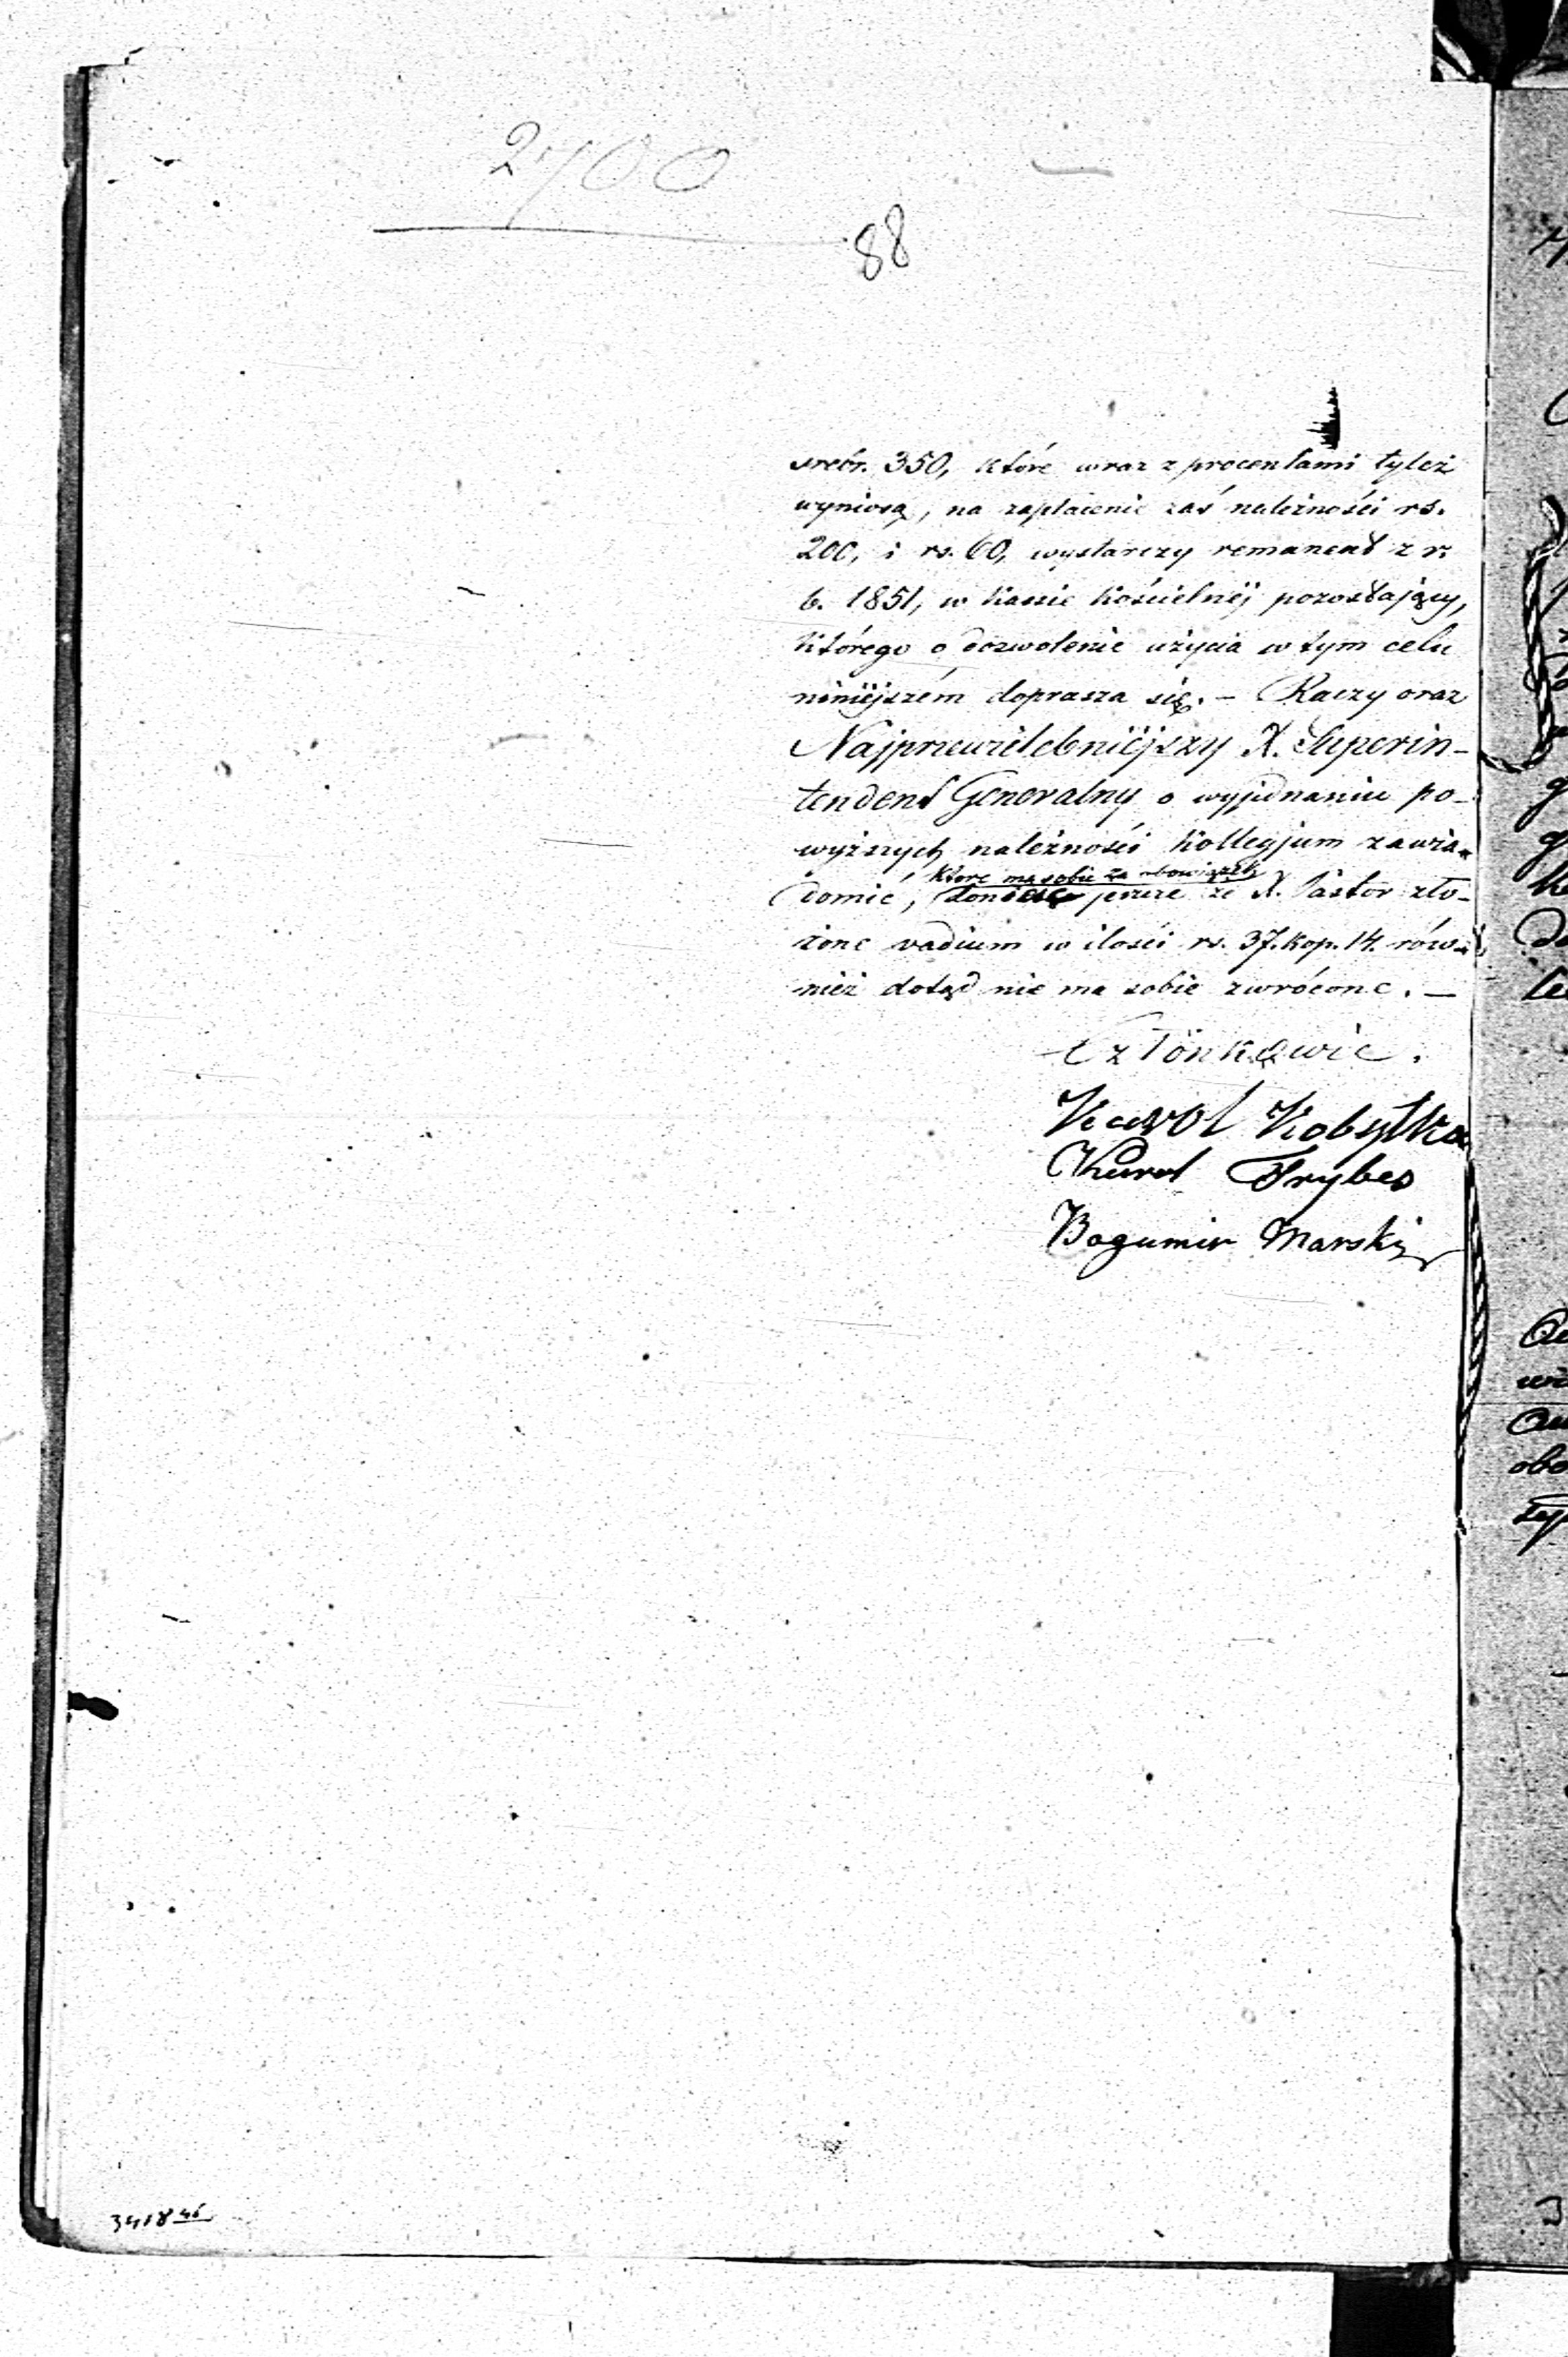 2700
88
srebr. 350, które wraz z procentami tyleż
wyniosą, na zapłacenie zaś należności rs.
200, i rs. 60, wystarczy remanent z r.
b. 1851, w kassie kościelnéj pozostający,
którego o dozwolenie użycia w tym celu
niniéjszém doprasza się. – Raczy oraz
Najprzewielebniéjszy X. Superin-
tendent Generalny o wyjednaniu po-
wyższych należności Kollegjum zawia-
które ma sobie za obowiązek
domić, donieść jeszcze że X. Pastor zło-
żone vadium w ilości rs. 37. kop. 14. rów-
nież dotąd nie ma sobie zwrócone. –
Członkowie.
Karol Kobyłka
Karol Frybes
Bogumir Marski